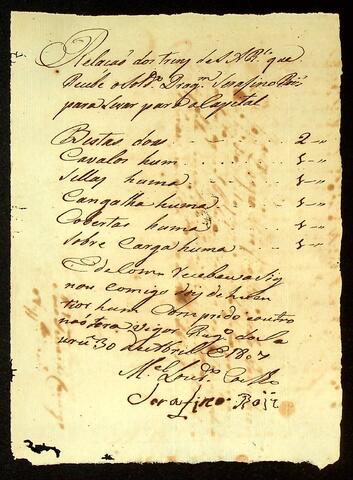 Relação dos trens de S. A. R.l que
Recebe o Sold.o Drag.m Serafino Roiz
para Levar para a Capital
Bestas duas . . . 2 -"
Cavalos hum . . . 1 -"
Sillas huma . . . 1 -"
Cangalha huma . . . 1 -"
Cobertas huma . . . 1 -"
Sobre Carga huma . . . 1 -"
E de Como Recebeu asig
nou comigo dois de hum
tior hum Comprido outro
não tera vigor Reg.o da
30 de Abril
M.el Lour.ço
Serafino Roiz